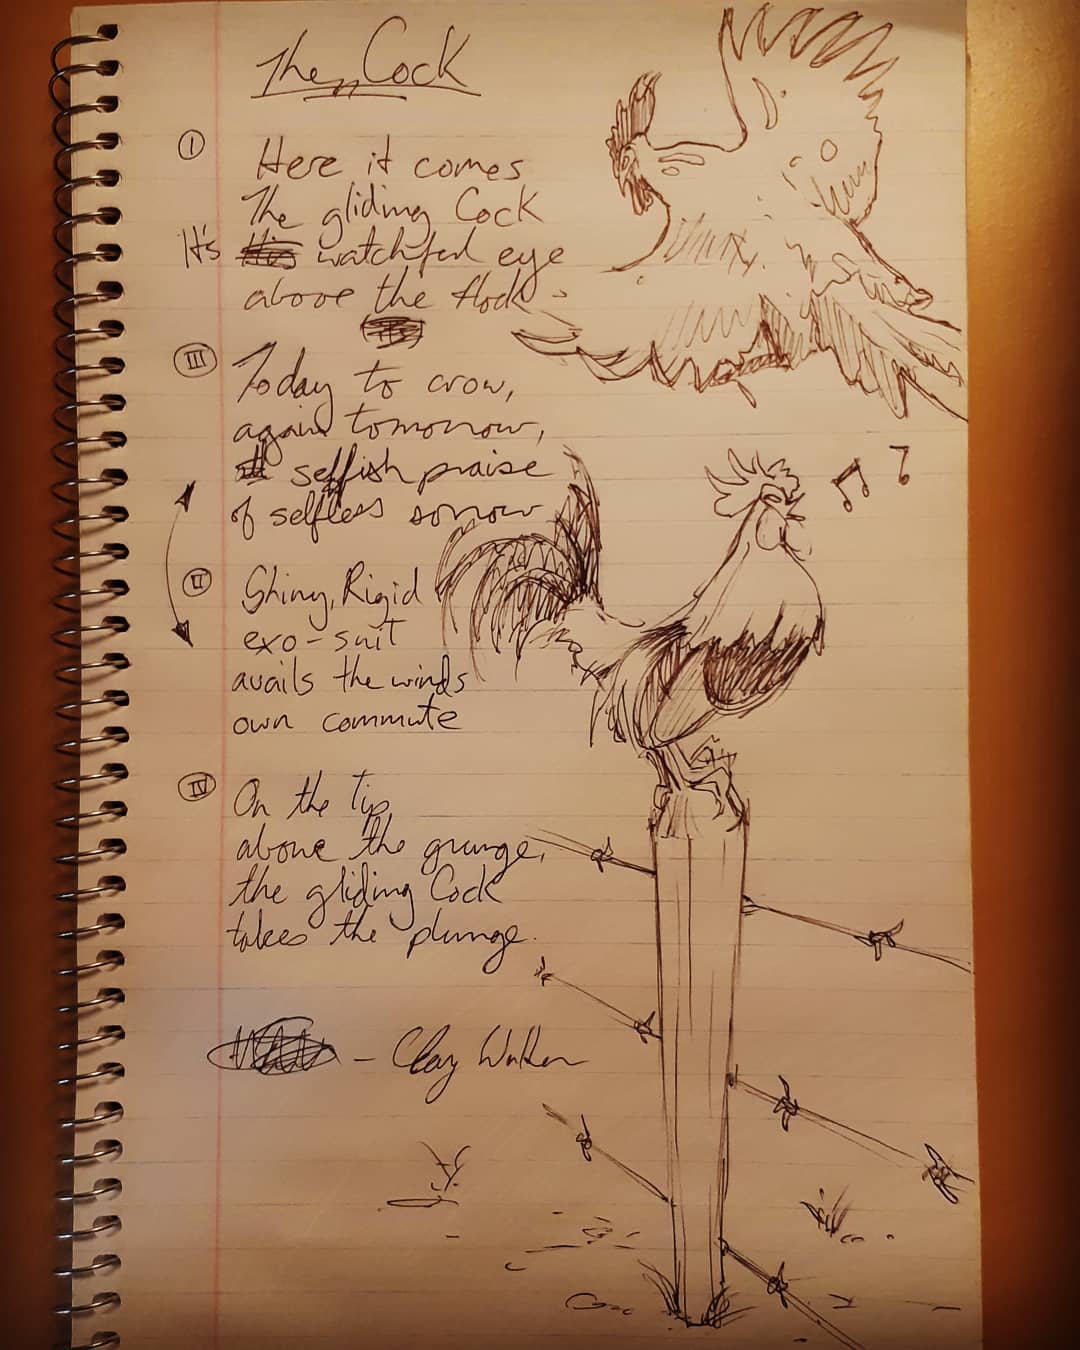 The Cock
I
Here it comes
The gliding Cock
It's watchful eye
above the flock -
III
Today to crow,
again tomorrow,
selfish praise
of selfless sorrow
II
Shiny, Rigid
exo-suit
avails the winds
own commute
IV
On the tip
above the grunge,
the gliding Cock
takes the plunge.
- Clay Walker